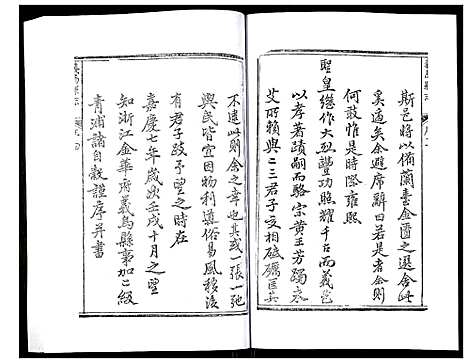 斯邑將以備蘭臺金匱之選舍此
奚適矣余避席辭曰若是者余則
何敢惟是時際雍熙
聖皇繼作大烈豐功照耀千古而義邑
以孝著蹟嗣而駱宗黃王芳躅永
艾所賴與二三君子交相砥礪匡其
不逮此則余之幸也其或一張一弛
與民皆宜因物利道俗易風移後
有君子跂予望之時在
嘉慶七年歲次壬戌十月之望
知浙江金華府義烏縣事加二級
青浦諸自穀謹序并書